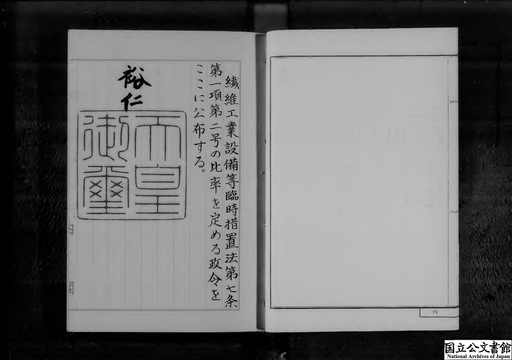 繊維工業設備等臨時措置法第七条
第一項第二号の比率を定める政令を
ここに公布する。
裕仁
天皇
御璽
国立公文書館
National Archives of Japan